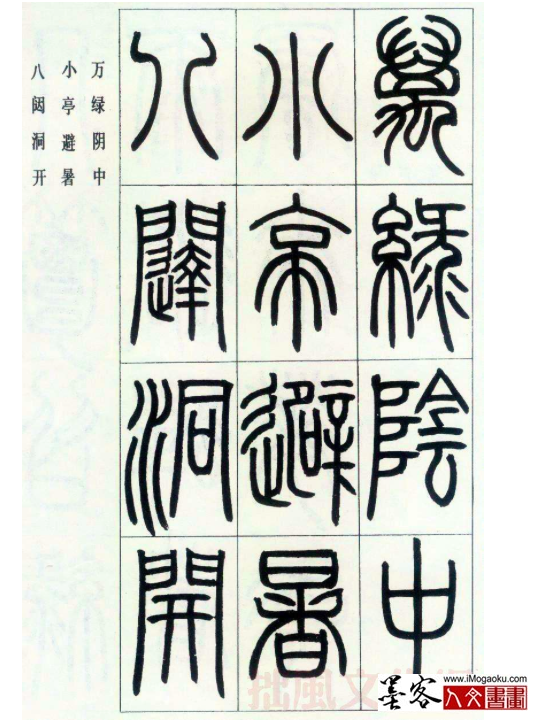 萬綠陰中
小亭避暑
八闥洞開
万绿阴中
小亭避暑
八闼洞开
拙風文
www.iMogaoku.com
墨客
人文書畫